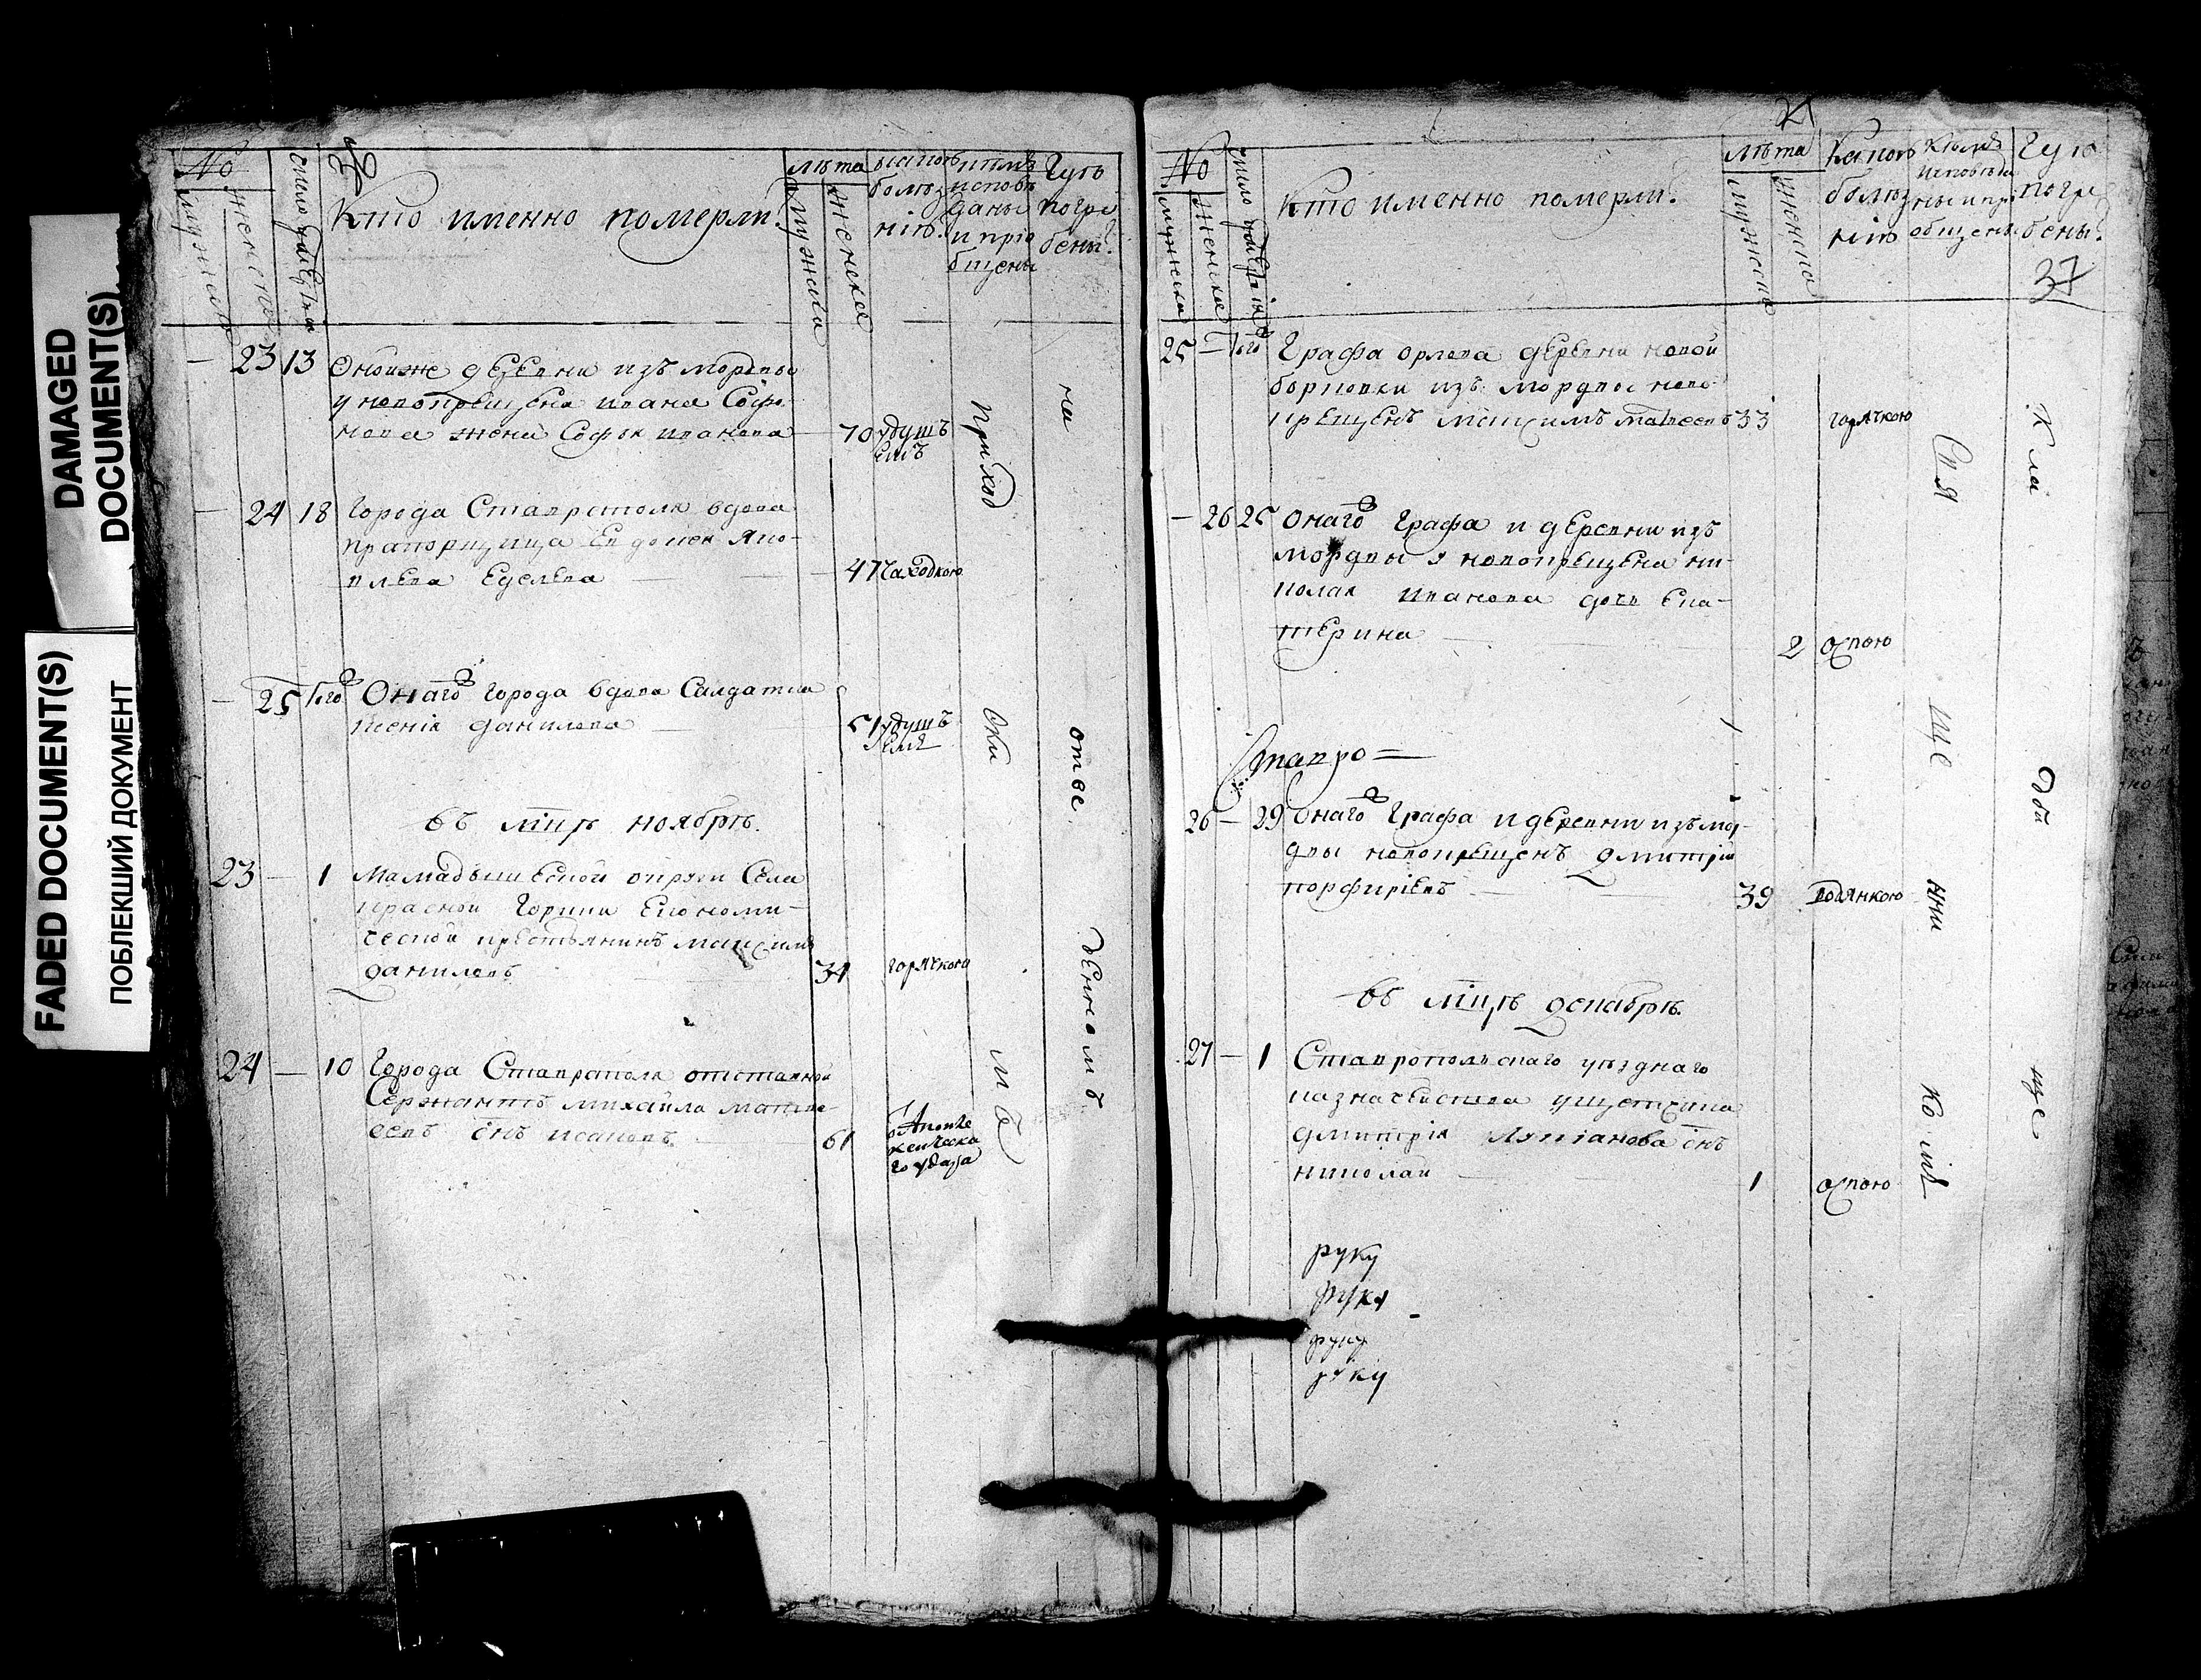 DAMAGED
DOCUMENT(S)
FADED DOCUMENT(S)
ПОБЛЕКШИЙ ДОКУМЕНТ
№
мужеска
женска
число умертвія
Кто именно померли?
лѣта
мужеска
женска
какою
болѣз
нію
кѣмъ
исповѣ
даны
и пріо
бщены
Гдѣ
погре
бены?
23 13 Оной же деревни изъ мордвы
у новокрещена ивана Софо
нова жена Софья иванова 70 удушь
емъ
24 18 Города Ставрополя вдова
прапорщица Евдокея Яко-
влева 47 чахоткою
25 того Онаго города вдова Салдатка
ксенія данилова 51 удушь
емъ
въ мцѣ ноябрѣ.
23 — 1 Мамадышеской округи Села
красной Горки Економи-
ческой крестьянинъ максимъ
даниловъ 34 горячкою
24 — 10 Города Ставрополя отставной
Сержантъ михайла матве-
евъ снъ исаковъ 61 отъ Апопле
ксическа
го удара
приход
ски
мъ
на
отве
денномъ
№
мужеска
женска
Кто именно померли?
лѣта
мужеска
женска
Какою
болѣз
нію
Кѣмъ
исповѣда
ны и прі
общены
Гдѣ
погре
бены?
37
25 — того Графа орлова деревни новой
борковки изъ мордвы ново
крещенъ максимъ матвеевъ 33 горячкою
— 26 25 Онаго Графа и деревни изъ
мордвы у новокрещена ни-
колая иванова дочь Ека-
терина 2 Оспою
Ставро =
26 — 29 Онаго Графа и деревни изъ мор-
двы новокрещенъ дмитрій
порфиріевъ 39 водянкою
въ мцѣ декабрѣ.
27 — 1 Ставропольскаго уѣзднаго
казначейства у
дмитрія Лукіанова снъ
николай 1 Оспою
Свя
ще
нни
комъ
Кла
дби
ще
руку
руку
руку
руку